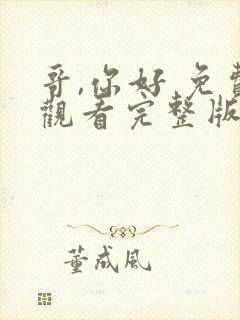 哥,你好 免費
觀看完整版
董成風